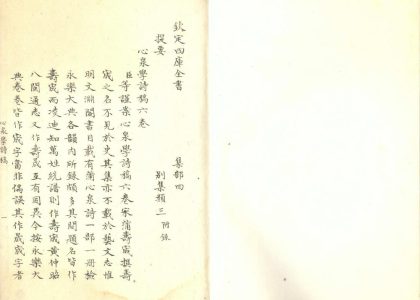 欽定四庫全書 集部四
提要 別集類三 附錄
心泉學詩稿六卷
臣等謹案心泉學詩稿六卷宋蒲壽宬撰壽
宬之名不見於史其集亦不載於藝文志惟
明文淵閣書目載有蒲心泉詩一部一冊檢
永樂大典各韻內所錄頗多其間題名皆作
壽宬而凌迪知萬姓統譜則作壽宬黄仲昭
八閩通志又作壽晟互有同異今按永樂大
典卷卷皆作宬字當非偶誤其作晟宬字者
心泉學詩稿 一